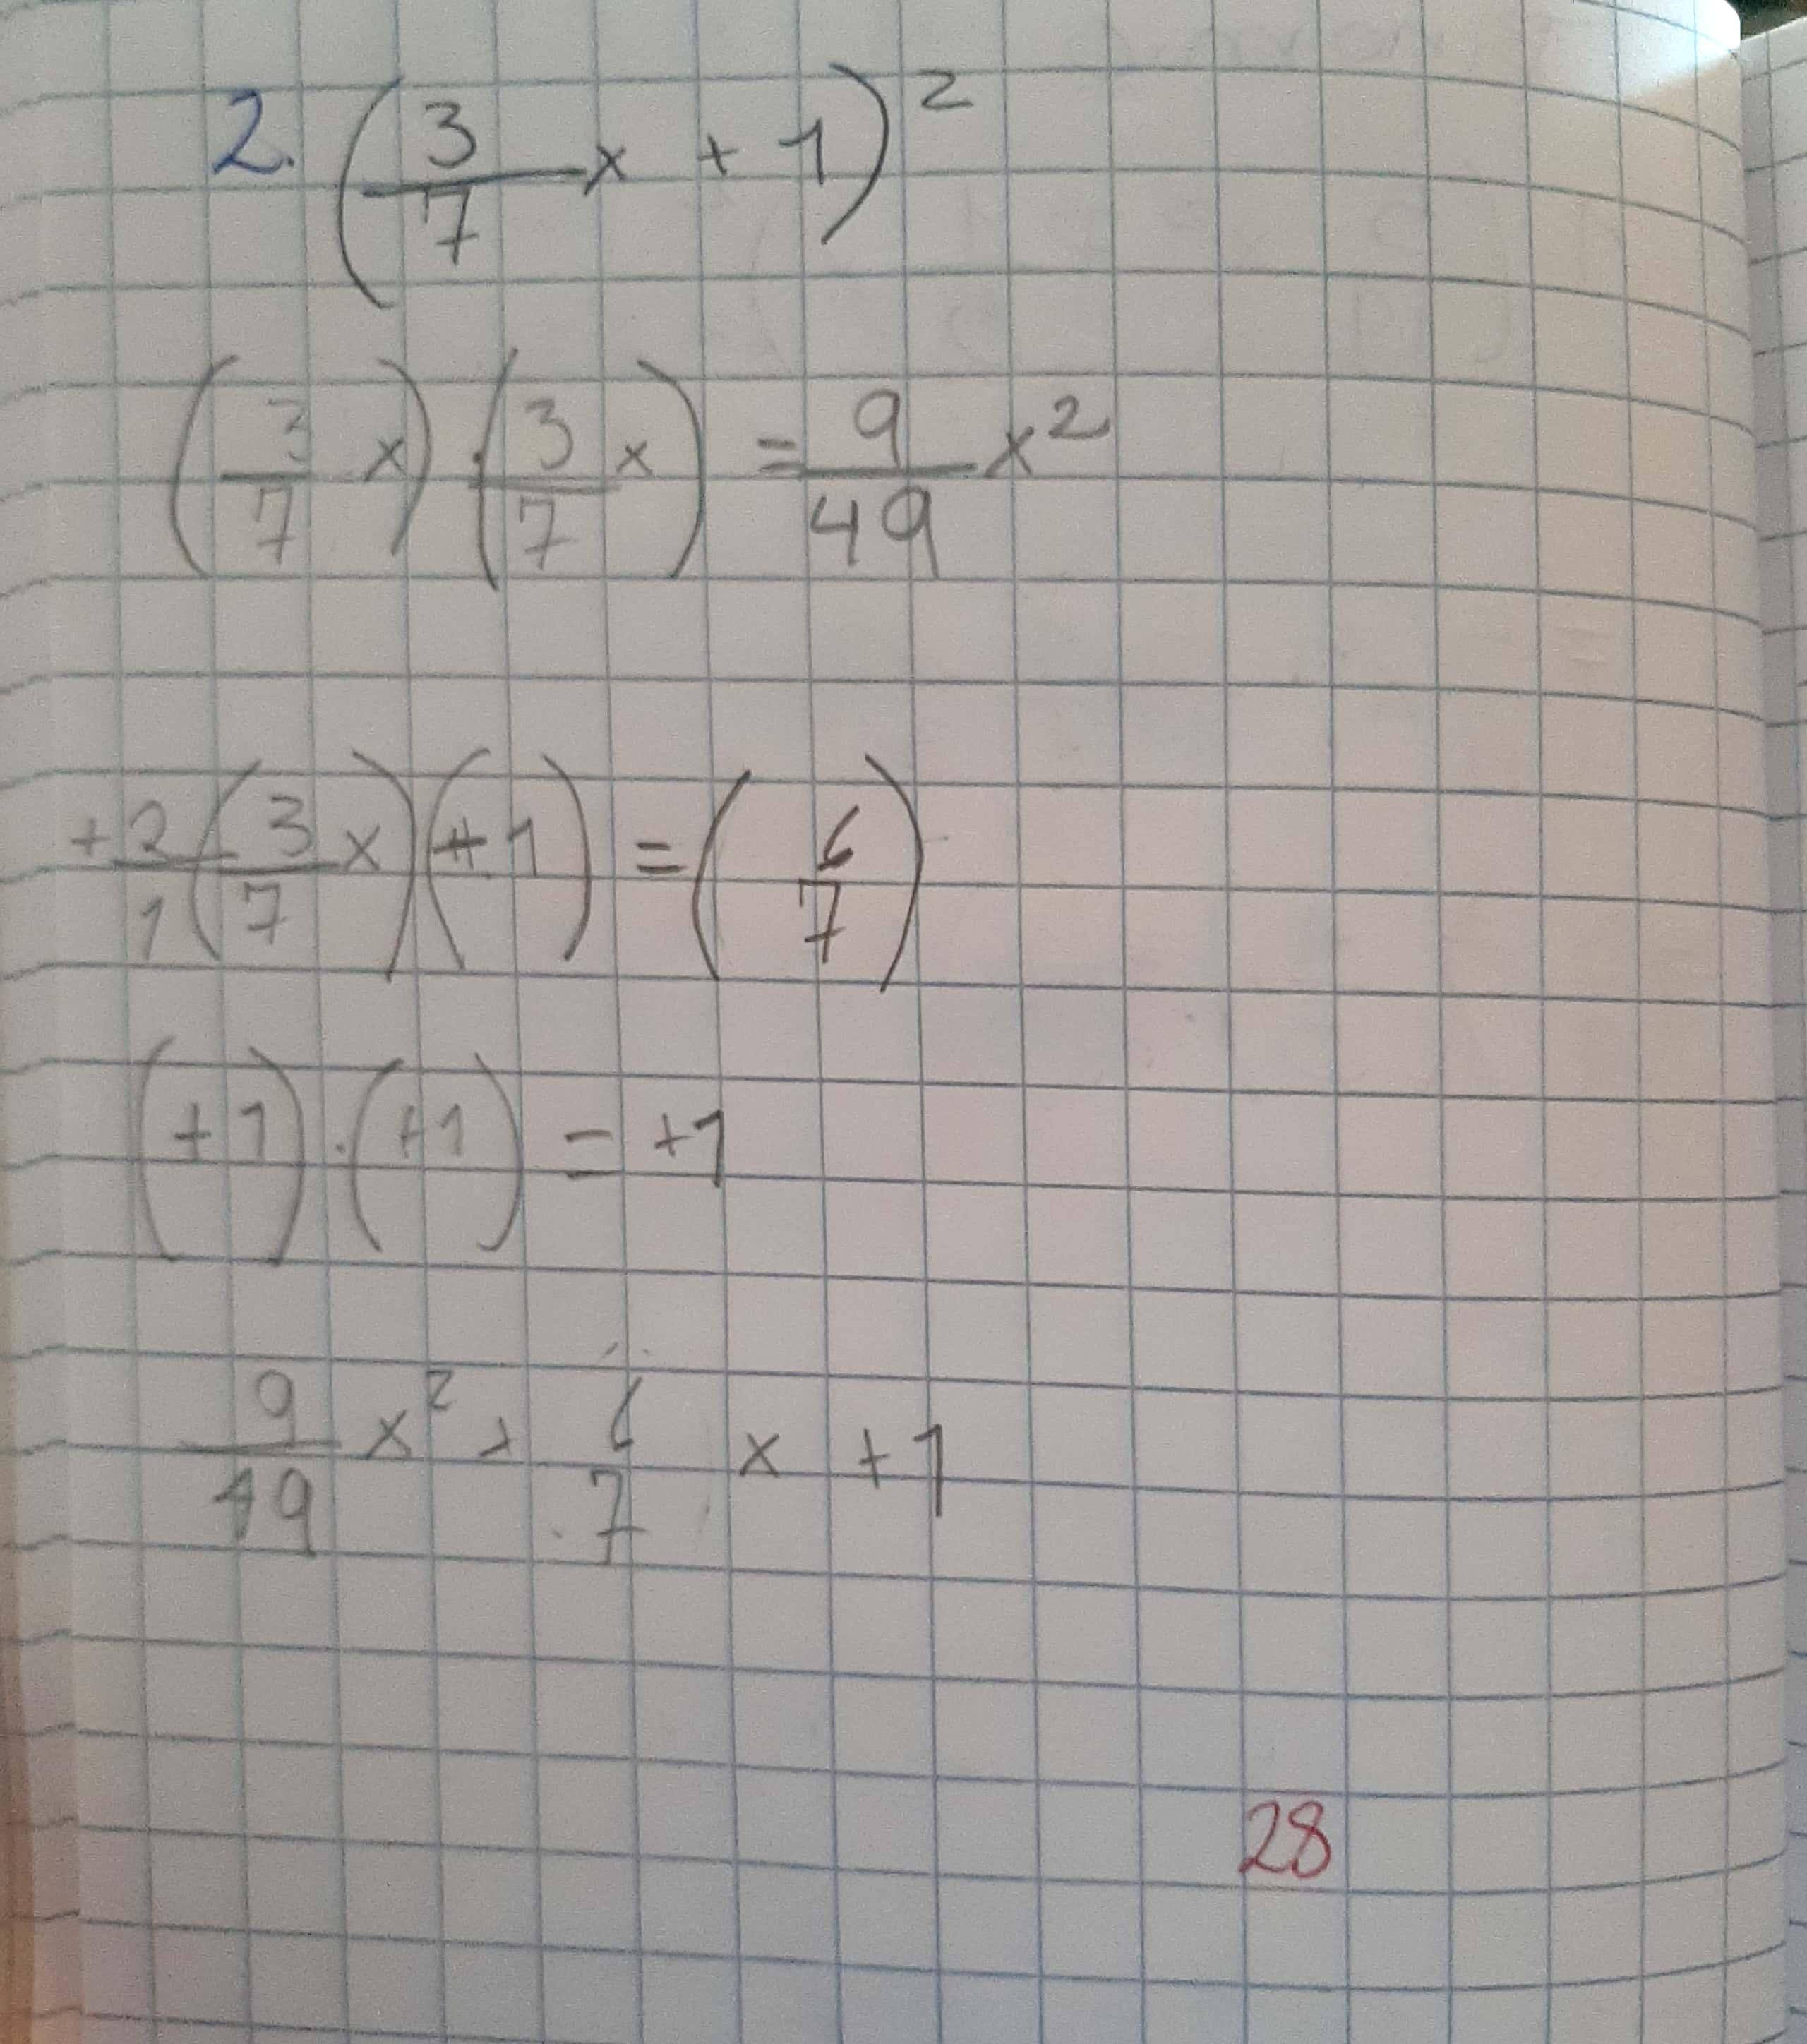 2. (3/7 x + 1)²
(3/7 x) · (3/7 x) = 9/49 x²
+2/1 (3/7 x) (+1) = (6/7)
(+1) · (+1) = +1
9/49 x² + 6/7 x + 1
28